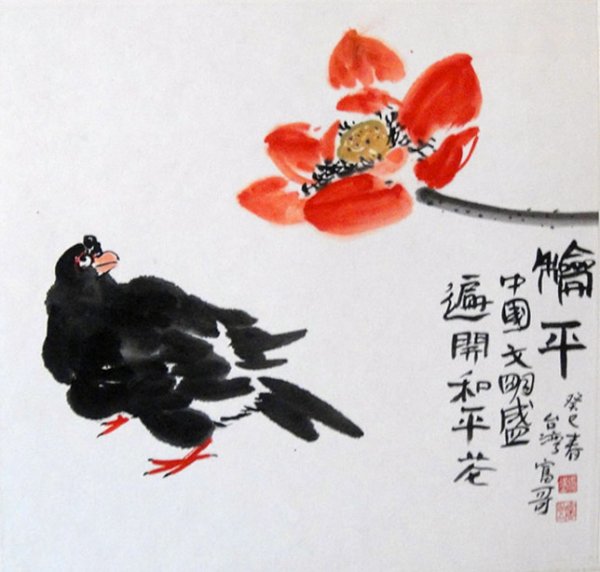 龢平
中國文明盛
遍開和平花
癸巳春
台灣富哥